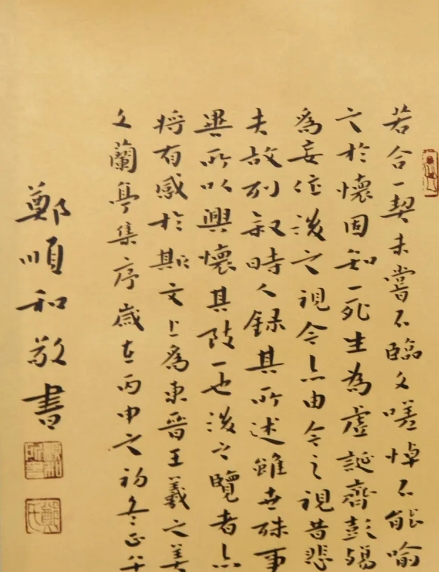 若合一契未嘗不臨文嗟悼不能喻
之於懷固知一死生為虛誕齊彭殤
為妄作後之視今亦由今之視昔悲
夫故列敘時人錄其所述雖世殊事
異所以興懷其致一也後之覽者亦
將有感於斯文 上為東晉王羲之美
文蘭亭集序歲在丙申之初冬
鄭順和敬書